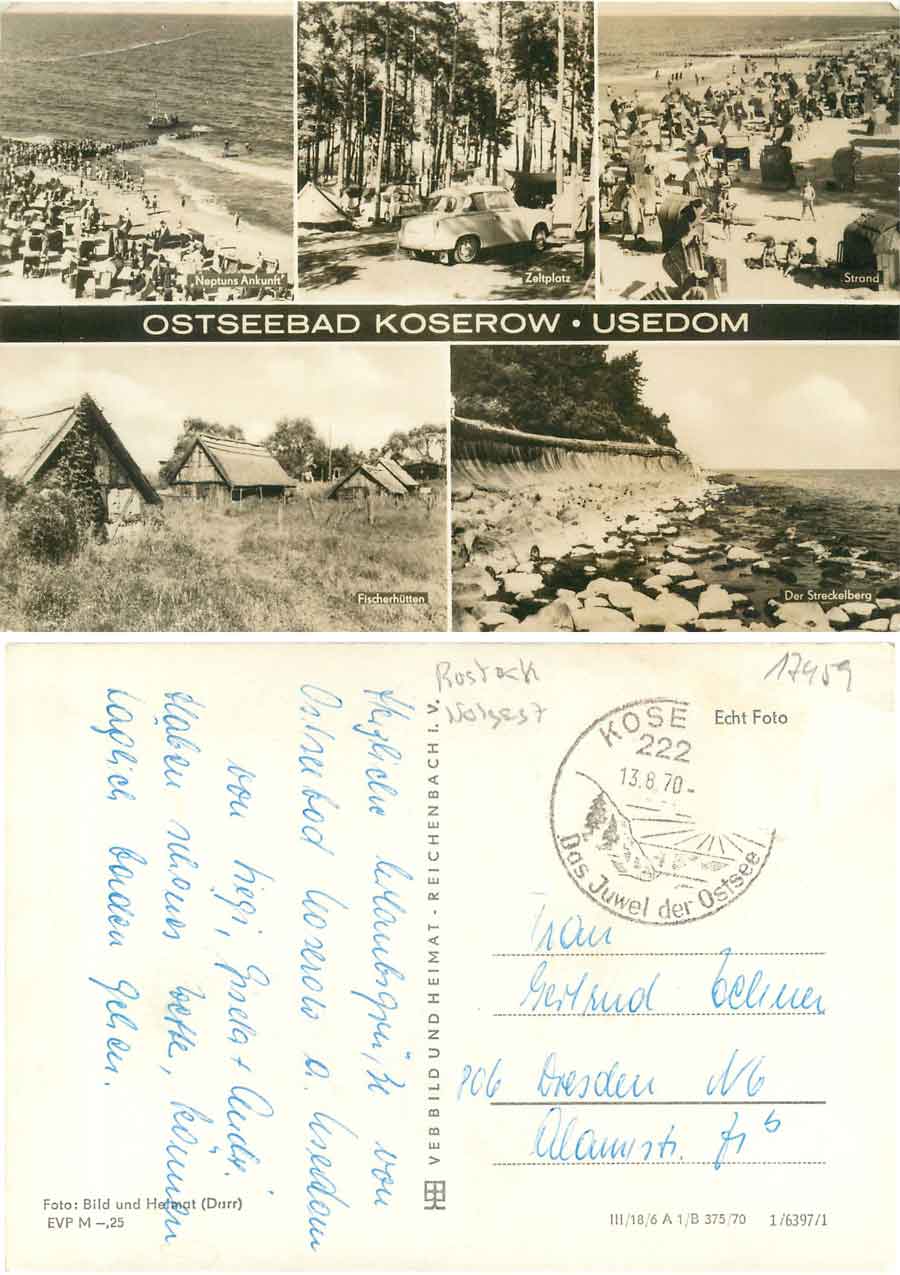 Neptuns Ankunft
Zeltplatz
Strand
OSTSEEBAD KOSEROW · USEDOM
Fischerhütten
Der Streckelberg
Rostock
17459
Echt Foto
KOSE
222
13.8.70-
Das Juwel der Ostsee
Herzliche Urlaubsgrüße von
Ostseebad Koserow a. Usedom
von Gisela + Andr.
Haben schönes Wetter, können
täglich baden gehen.
VEB BILD UND HEIMAT · REICHENBACH i. V.
Frau
Gertrud
806 Dresden N6
Alaunstr.
Foto: Bild und Heimat (Darr)
EVP M –,25
III/18/6 A 1/B 375/70 1/6397/1